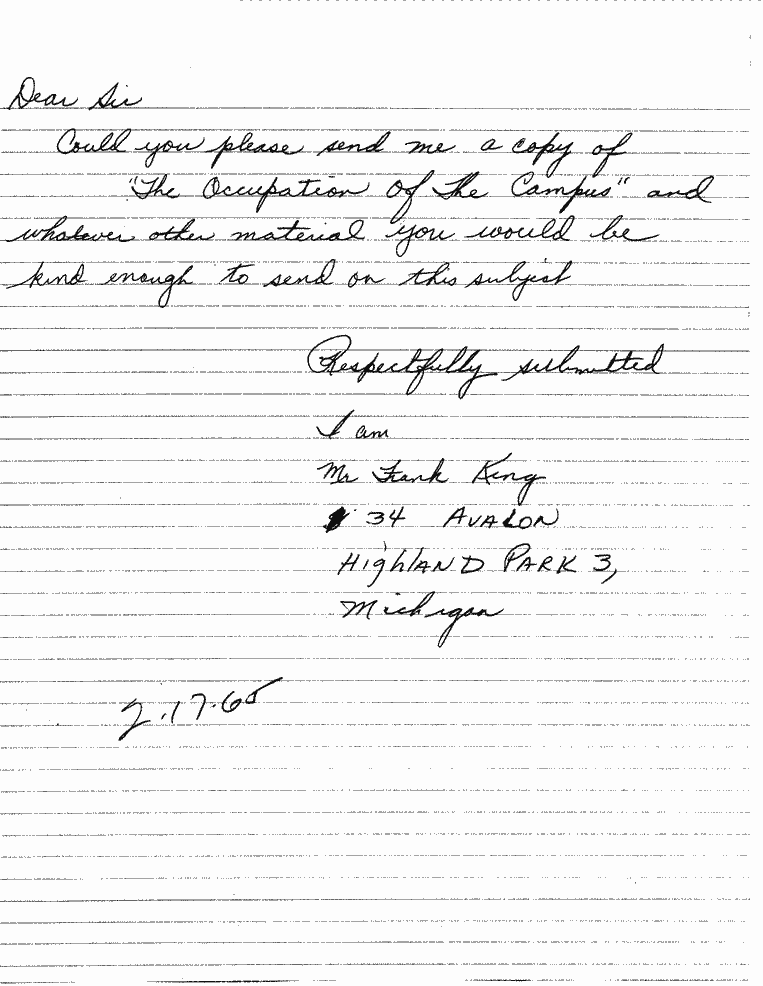 Dear Sir
Could you please send me a copy of
"The Occupation Of The Campus" and
whatever other material you would be
kind enough to send on this subject
Respectfully submitted
I am
Mr Frank King
34 AVALON
HighlAND PARK 3,
Michigan
2.17.65